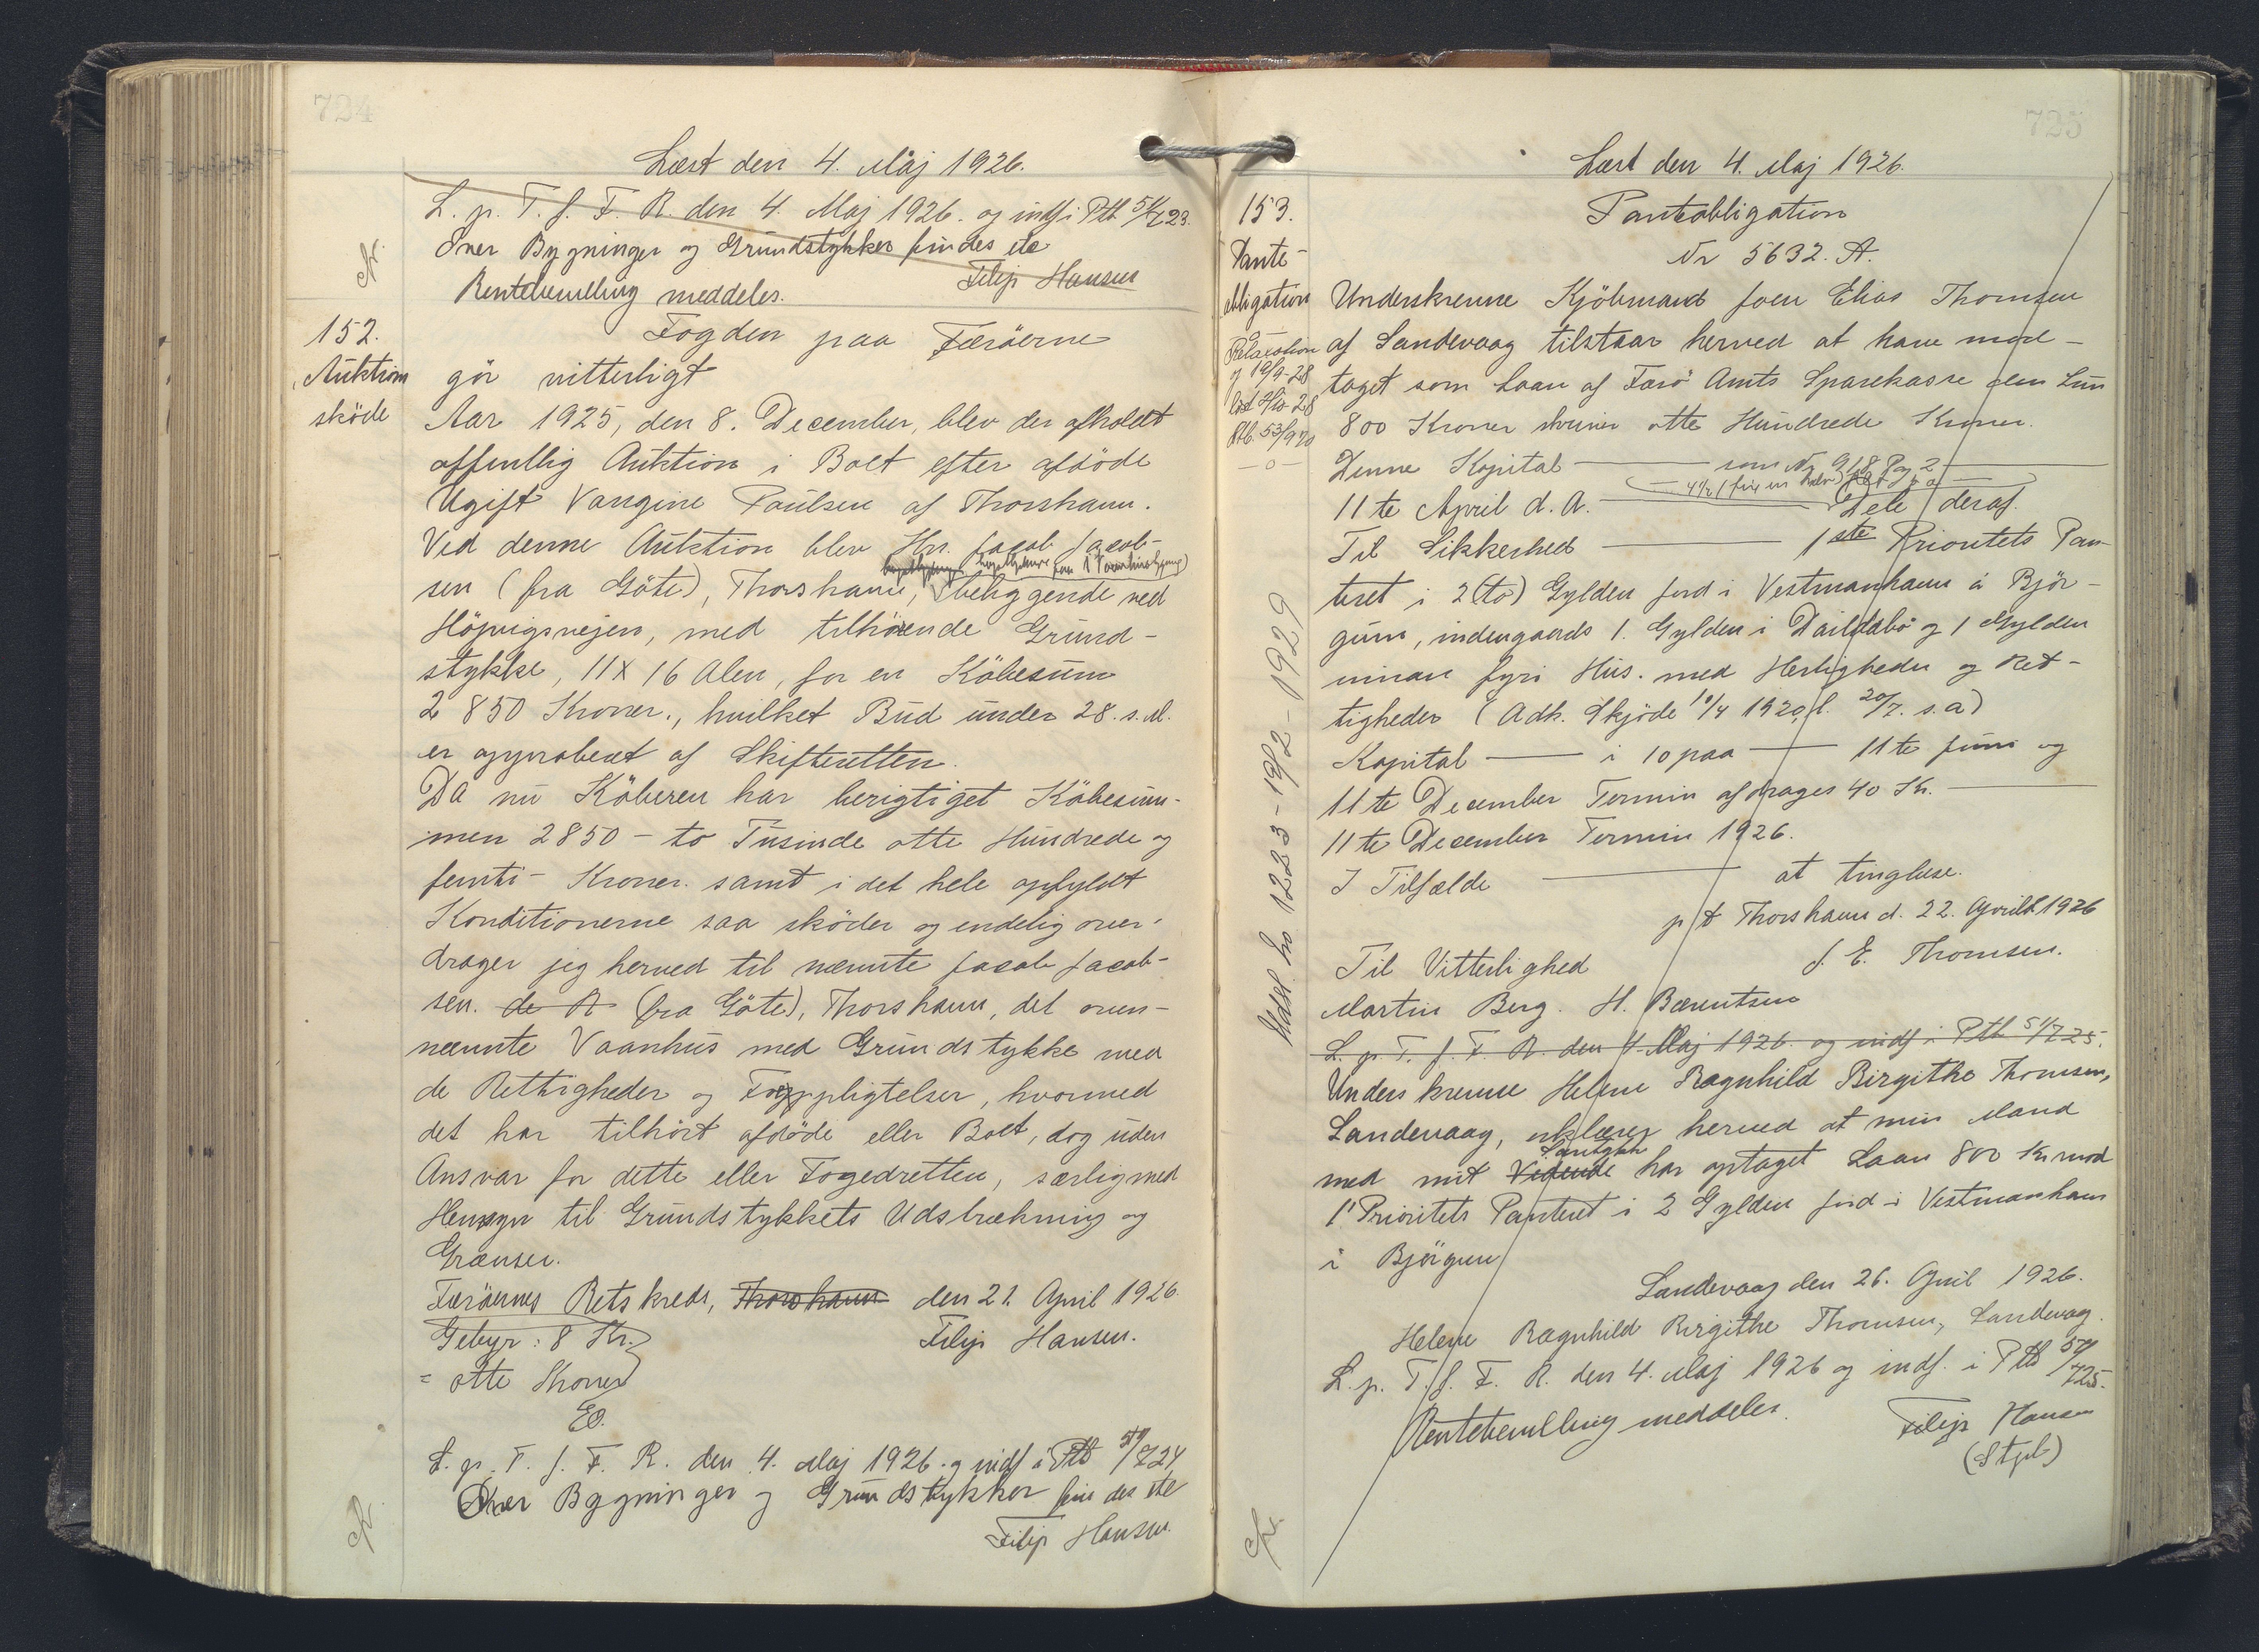 724
Læst den 4. Maj 1926.
L. p. T. f. F. R. den 4. Maj 1926. og indf i Ptb 51/723.
Over Bygninger og Grundstykker findes ete
Rentebevilling meddeles. Filip Hansen
152.
Auktions
sköde
Fogden paa Færöerne
gör vitterligt
Aar 1925, den 8. December, blev der afholdt
offentlig Auktion i Boet efter afdöde
Ugift Vangine Paulsen af Thorshavn.
Ved denne Auktion blev Hr. Jacob Jacob-
sen (fra Göte), Thorshavn, beliggende ved
Höjvigsvejen, med tilhörende Grund-
stykke, 11 x 16 Alen, for en Köbesum
2 850 Kroner., hvilket Bud under 28. s. M.
er approberet af Skifteretten.
Da nu Köberen har berigtiget Köbesum-
men 2850 - to Tusinde otte Hundrede og
femti - Kroner. samt i det hele opfyldt
Konditionerne saa sköder og endelig over-
drager jeg herved til nævnte Jacob Jacob-
sen. de R (fra Göte), Thorshavn, det oven-
nævnte Vaanhus med Grundstykke med
de Rettigheder og Forpligtelser, hvormed
det har tilhört afdöde eller Boet, dog uden
Ansvar for dette eller Fogedretten, særlig med
Hensyn til Grundstykkets Udstrækning og
Grænser.
Færöernes Retskreds, Thorshavn den 21. April 1926.
Gebyr: 8 Kr. Filip Hansen.
= otte Kroner
L. p. T. f. F. R. den 4. Maj 1926. og indf i Ptb 51/724
Over Bygninger og Grundstykker findes ete
Filip Hansen.
725
Læst den 4. Maj 1926.
153.
Pante-
obligation
Pantobligation
Nr 5632. A.
Underskrevne Kjöbmand Joen Elias Thomsen
af Sandevaag tilstaar herved at have mod-
taget som Laan af Færö Amts Sparekasse den Sum
800 Kroner skriver otte Hundrede Kroner.
Denne Kapital som Nr 918 Pag 2
11te April d. A. Dele deraf.
Til Sikkerhed 1ste Prioritets Pan-
teret i 2 (to) Gylden Jord i Vestmanhavn á Björ-
gum, indengaards 1. Gylden i Daildabö og 1 Gylden
uttan fyri Hús. med Herligheder og Ret-
tigheder (Adk. Skjöde 10/4 1920, l. 20/7. s. a)
Kapital i 10 paa 11te Juni og
11te December Termin afdrages 40 Kr.
11te December Termin 1926.
I Tilfælde at tinglæse.
p t Thorshavn d. 22. April 1926
J. E. Thomsen.
Til Vitterlighed
Martin Berg. H. Bærentsen
L. p. T. f. F. R. den 4. Maj 1926. og indf i Ptb 51/725.
Underskrevne Helene Ragnhild Birgithe Thomsen,
Sandevaag, erklærer herved at min Mand
Samtykke
med mit Vidende har optaget Laan 800 Kr. mod
1' Prioritets Panteret i 2 Gylden Jord i Vestmanhavn
i Björgum
Sandevaag den 26. April 1926.
Helene Ragnhild Birgithe Thomsen, Sandevaag.
L. p. T. f. F. R. den 4. Maj 1926 og indf. i Ptb 51/725.
Rentebevilling meddeles. Filip Hansen
(Stpl.)